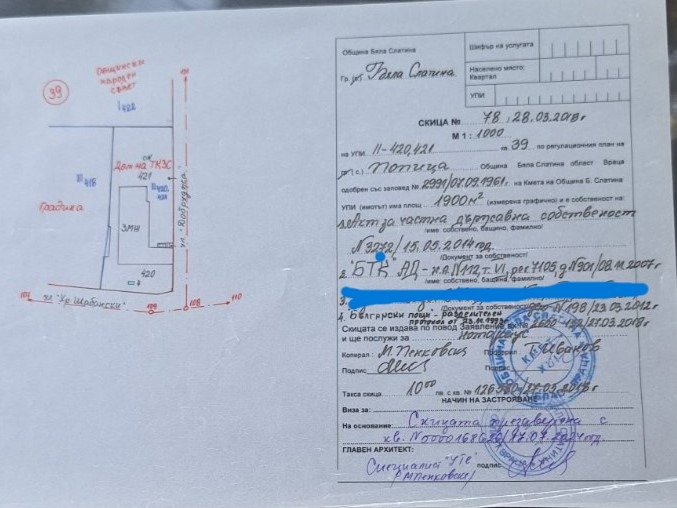 Общински
народен
съвет
39
I 422
Дом на ТКЗС
ОК
421
III 418
II 420,
421
Градинка
ЗМН
420
ул. "Добруджа"
ул. "Хр. Шабански"
109
108
110
Община Бяла Слатина
Шифър на услугата
Гр. Бяла Слатина
Населено място:
Квартал
УПИ
СКИЦА № 78, 28.03.2018г
М 1 : 1000
на УПИ II-420,421 кв 39 по регулационния план на
гр (с.) Попица Община Бяла Слатина област Враца
одобрен със заповед № 2991/07.09.1961г. на Кмета на Община Б. Слатина
УПИ (имотът) има площ 1900 м² (измерена графично) и е собственост на:
1. Акт за частна държавна собственост
/име: собствено, бащино, фамилно/
№3272/15.05.2014год.
/Документ за собственост/
2. "БТК" АД - н.а. №112, т. VI, рег. 7105, д №901/08.11.2007г
/име: собствено, бащино, фамилно/
3.
/Документ за собственост №198/23.03.2012
4. Български пощи - разделителен
протокол от 23.11.1993г.
Скицата се издава по повод Заявление вх. № 2600-192/27.03.2018г
и ще послужи за нотариус
Копирал: М. Пенковска Проверил: Т. Иванов
Подпис Подпис
Такса скица 10⁰⁰ лв. с кв. №
НАЧИН НА ЗАСТРОЯВАНЕ
Виза за:
На основание: Скицата презаверена с
кв. №
ГЛАВЕН АРХИТЕКТ:
Специалист "УТС" подпис
/М Пенковска/